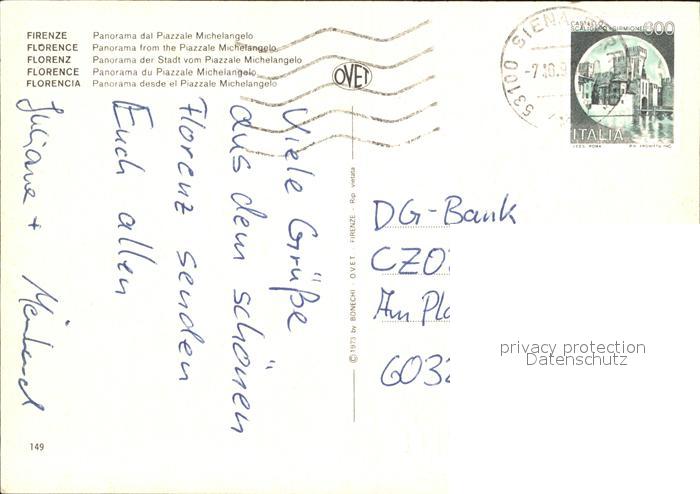 FIRENZE Panorama dal Piazzale Michelangelo
FLORENCE Panorama from the Piazzale Michelangelo
FLORENZ Panorama der Stadt vom Piazzale Michelangelo
FLORENCE Panorama du Piazzale Michelangelo
FLORENCIA Panorama desde el Piazzale Michelangelo
OVET
53100 SIENA
-7.10.9
600
ITALIA
I.P.Z.S. ROMA
Viele Grüße
aus dem schönen
Florenz senden
Euch allen
Juliane +
© 1973 by BONECHI - O.V.E.T. - FIRENZE - Rip. vietata
DG-Bank
CZO
Am Pla
6032
privacy protection
Datenschutz
149